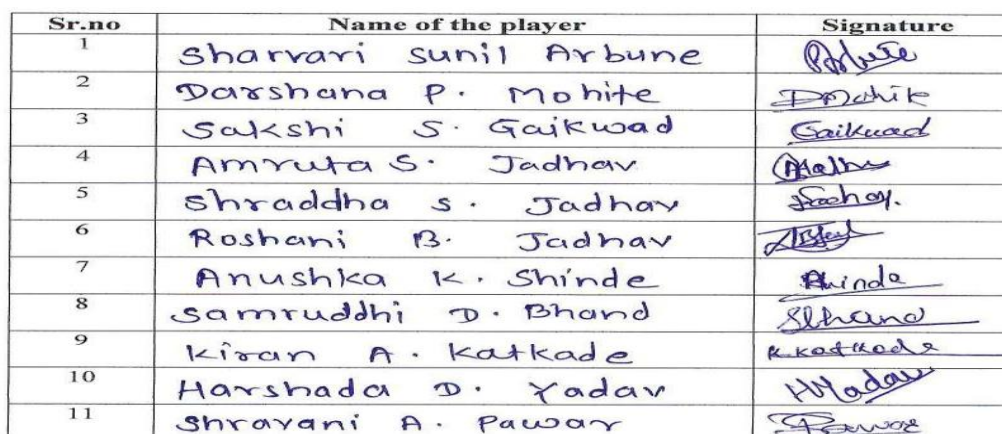 Sr.no Name of the player Signature
1 Sharvari Sunil Arbune
2 Darshana P. Mohite
3 Sakshi S. Gaikwad Gaikwad
4 Amruta S. Jadhav
5 Shraddha S. Jadhav
6 Roshani B. Jadhav
7 Anushka K. Shinde
8 Samruddhi D. Bhand
9 Kiran A. Katkade K.Katkade
10 Harshada D. Yadav HYadav
11 Shravani A. Pawar